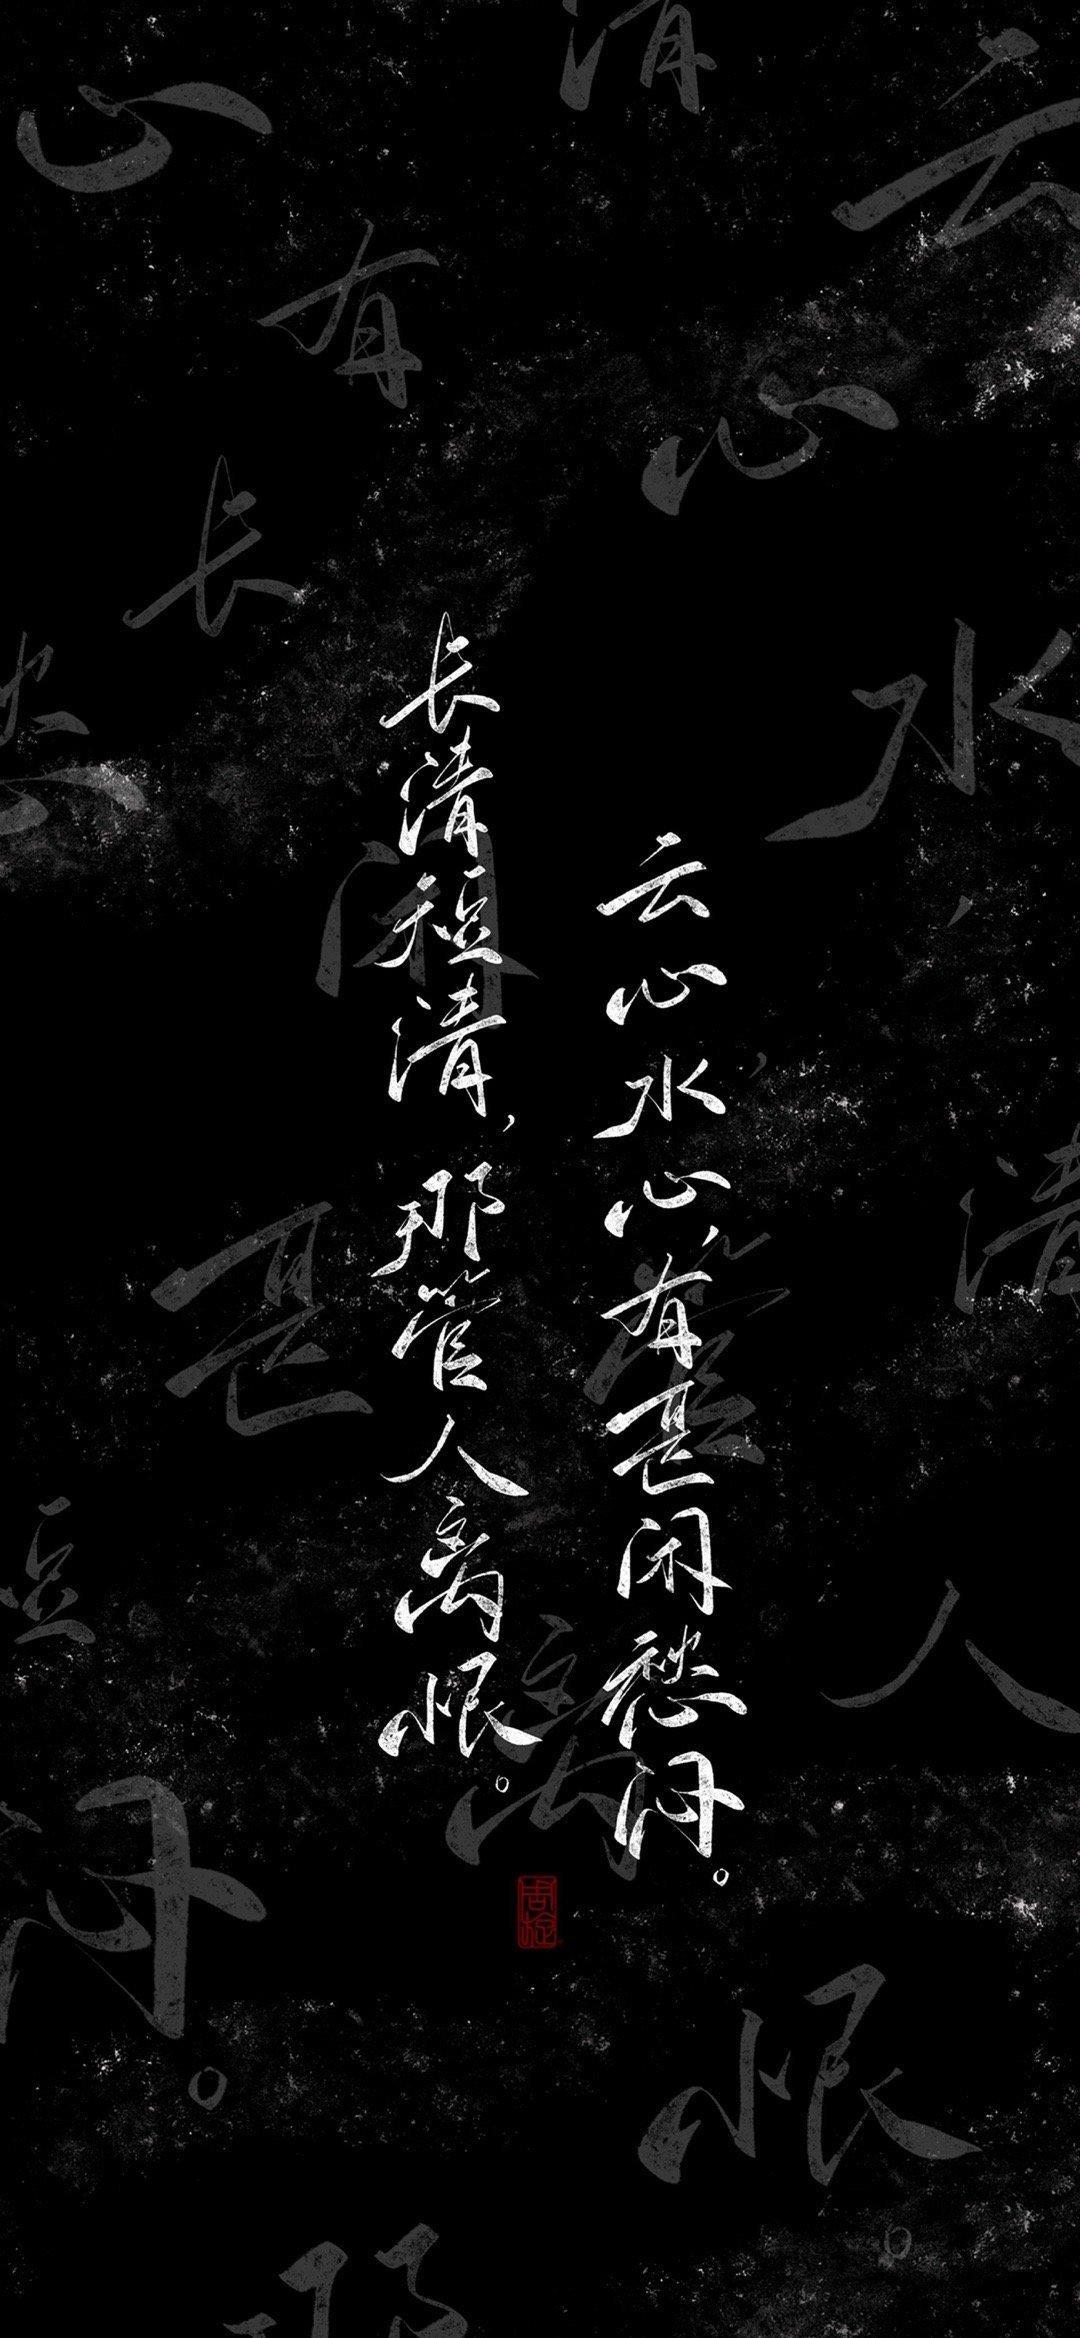 长清短清，那管人离恨。
云心水心，有甚闲愁闷。